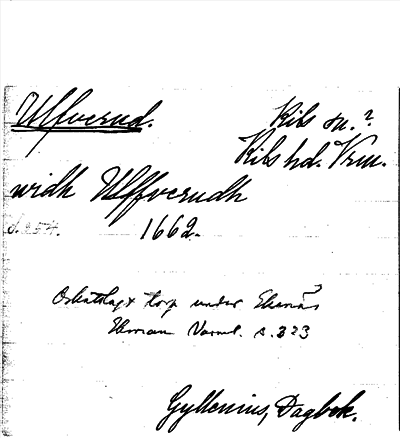 Ulfverud. Kils sn.?
Kils hd. Vrm.
widh Ulffverudh
s. 254. 1662.
Oskattlagt torp under Ekenäs?
Ekman Värml. s. 323
Gyllenius, Dagbok.